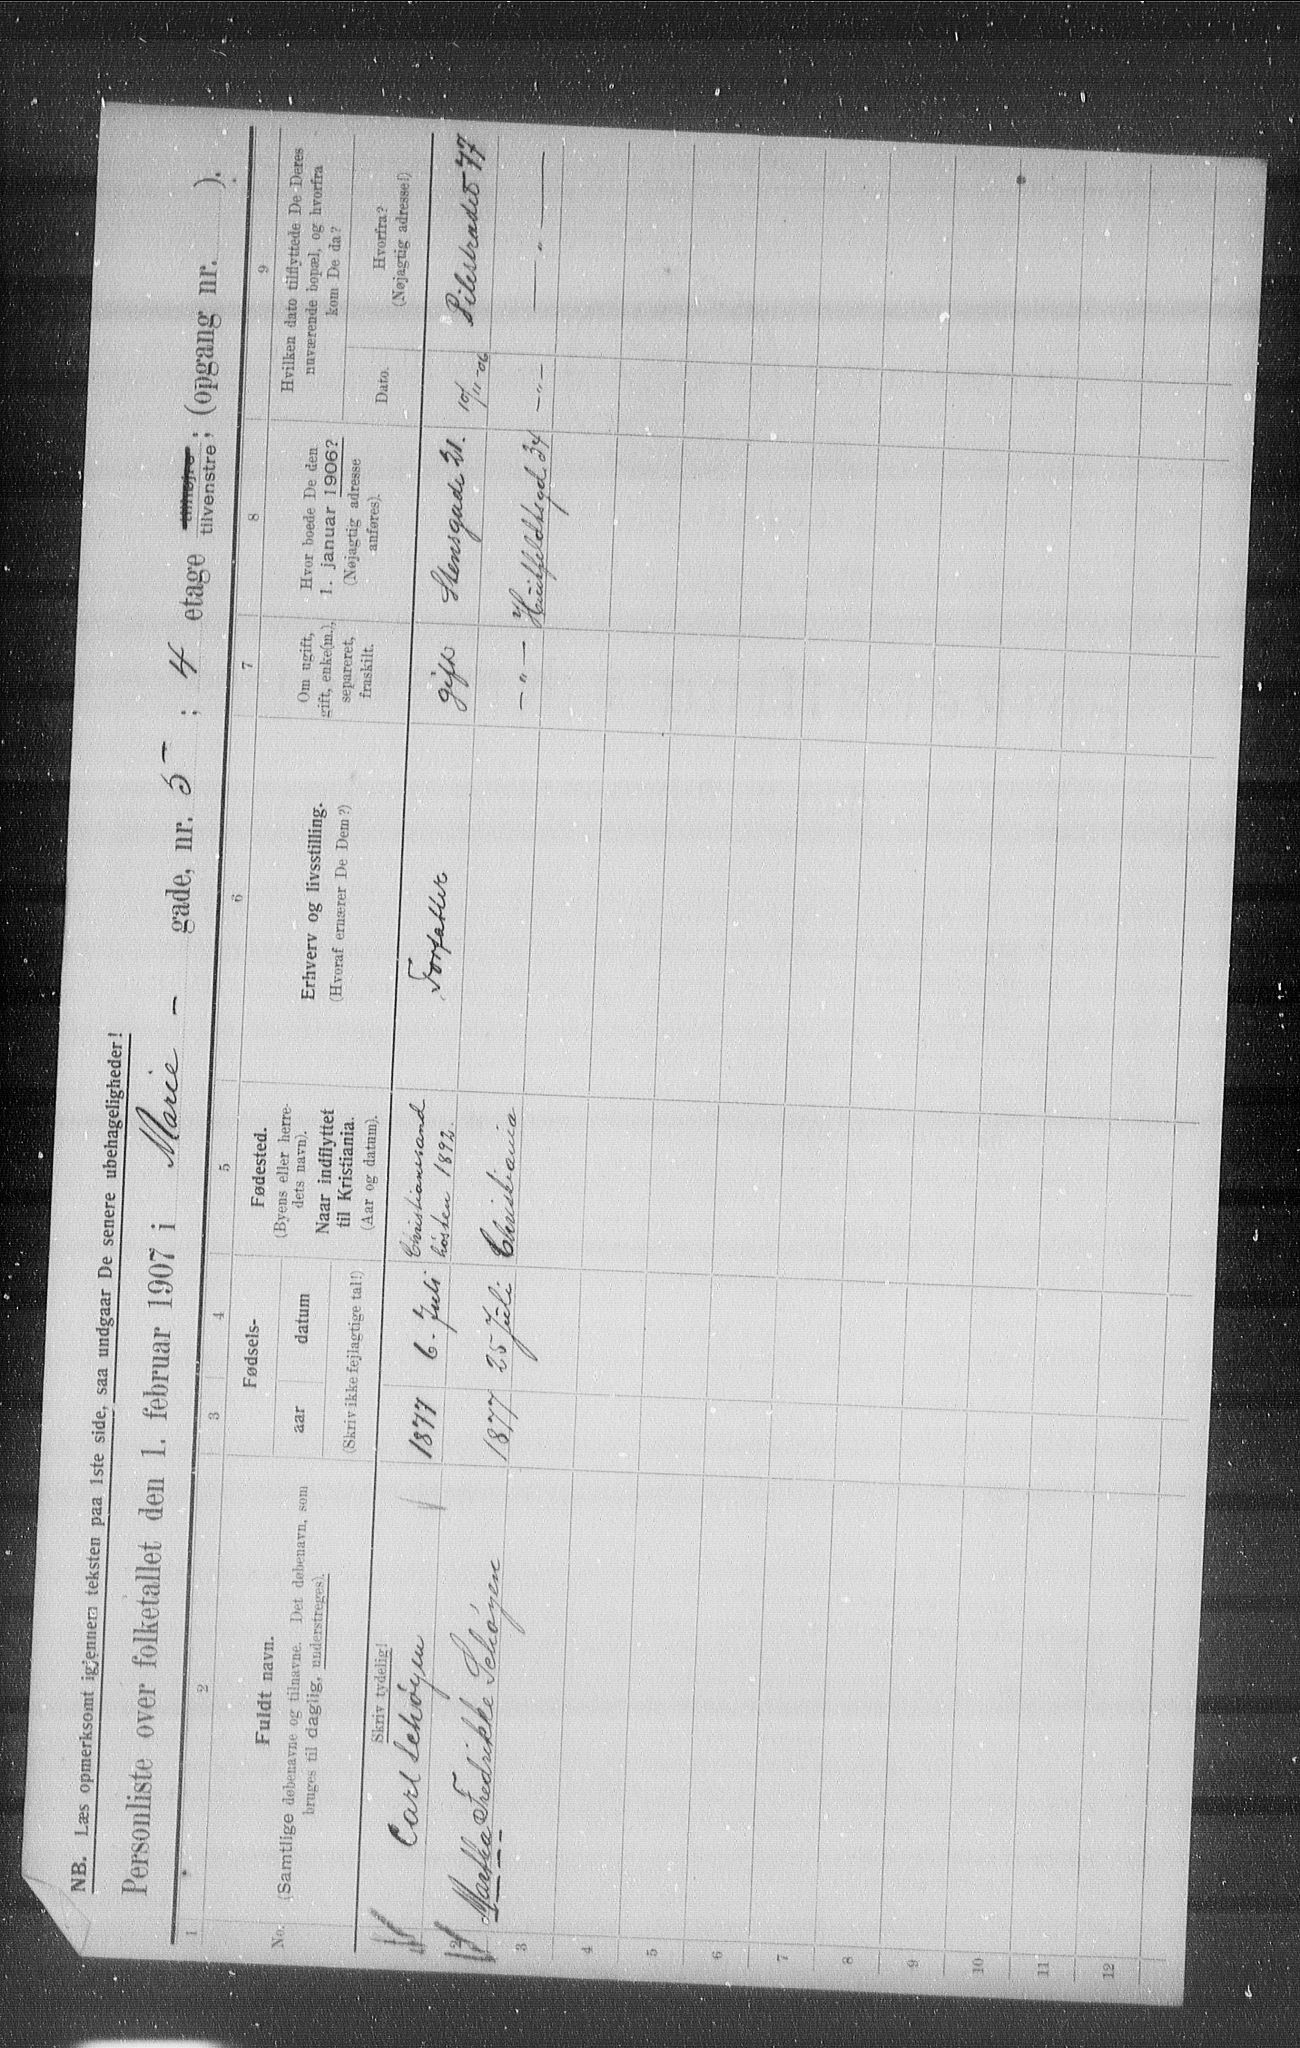 NB. Læs opmerksomt igjennem teksten paa 1ste side, saa undgaar De senere ubehageligheder!
Personliste over folketallet den 1. februar 1907 i Marie - gade, nr. 5 ; 4 etage tilhøjre, tilvenstre, (opgang nr. ).
1 2 3 4 5 6 7 8 9
No.
Fuldt navn.
(Samtlige døbenavne og tilnavne. Det døbenavn, som
bruges til daglig, understreges).
Skriv tydelig!
Fødsels-
aar datum
(Skriv ikke fejlagtige tal!)
Fødested.
(Byens eller herre-
dets navn).
Naar indflyttet
til Kristiania.
(Aar og datum).
Erhverv og livsstilling.
(Hvoraf ernærer De Dem?)
Om ugift,
gift, enke(m.),
separeret,
fraskilt.
Hvor boede De den
1. januar 1906?
(Nøjagtig adresse
anføres).
Hvilken dato tilflyttede De Deres
nuværende bopæl, og hvorfra
kom De da?
Dato.
Hvorfra?
(Nøjagtig adresse!)
Carl Schöyen 1877 6. Juli Christianssand
hösten 1892. Forfatter gift Stensgade 21. 10/11-06 Pilestradet 77
2 Martha Fredrikke Schöyen 1877 25 Juli Christiania - " - Huitfeldtsgd. 34 - " - - " -
3
4
5
6
7
8
9
10
11
12